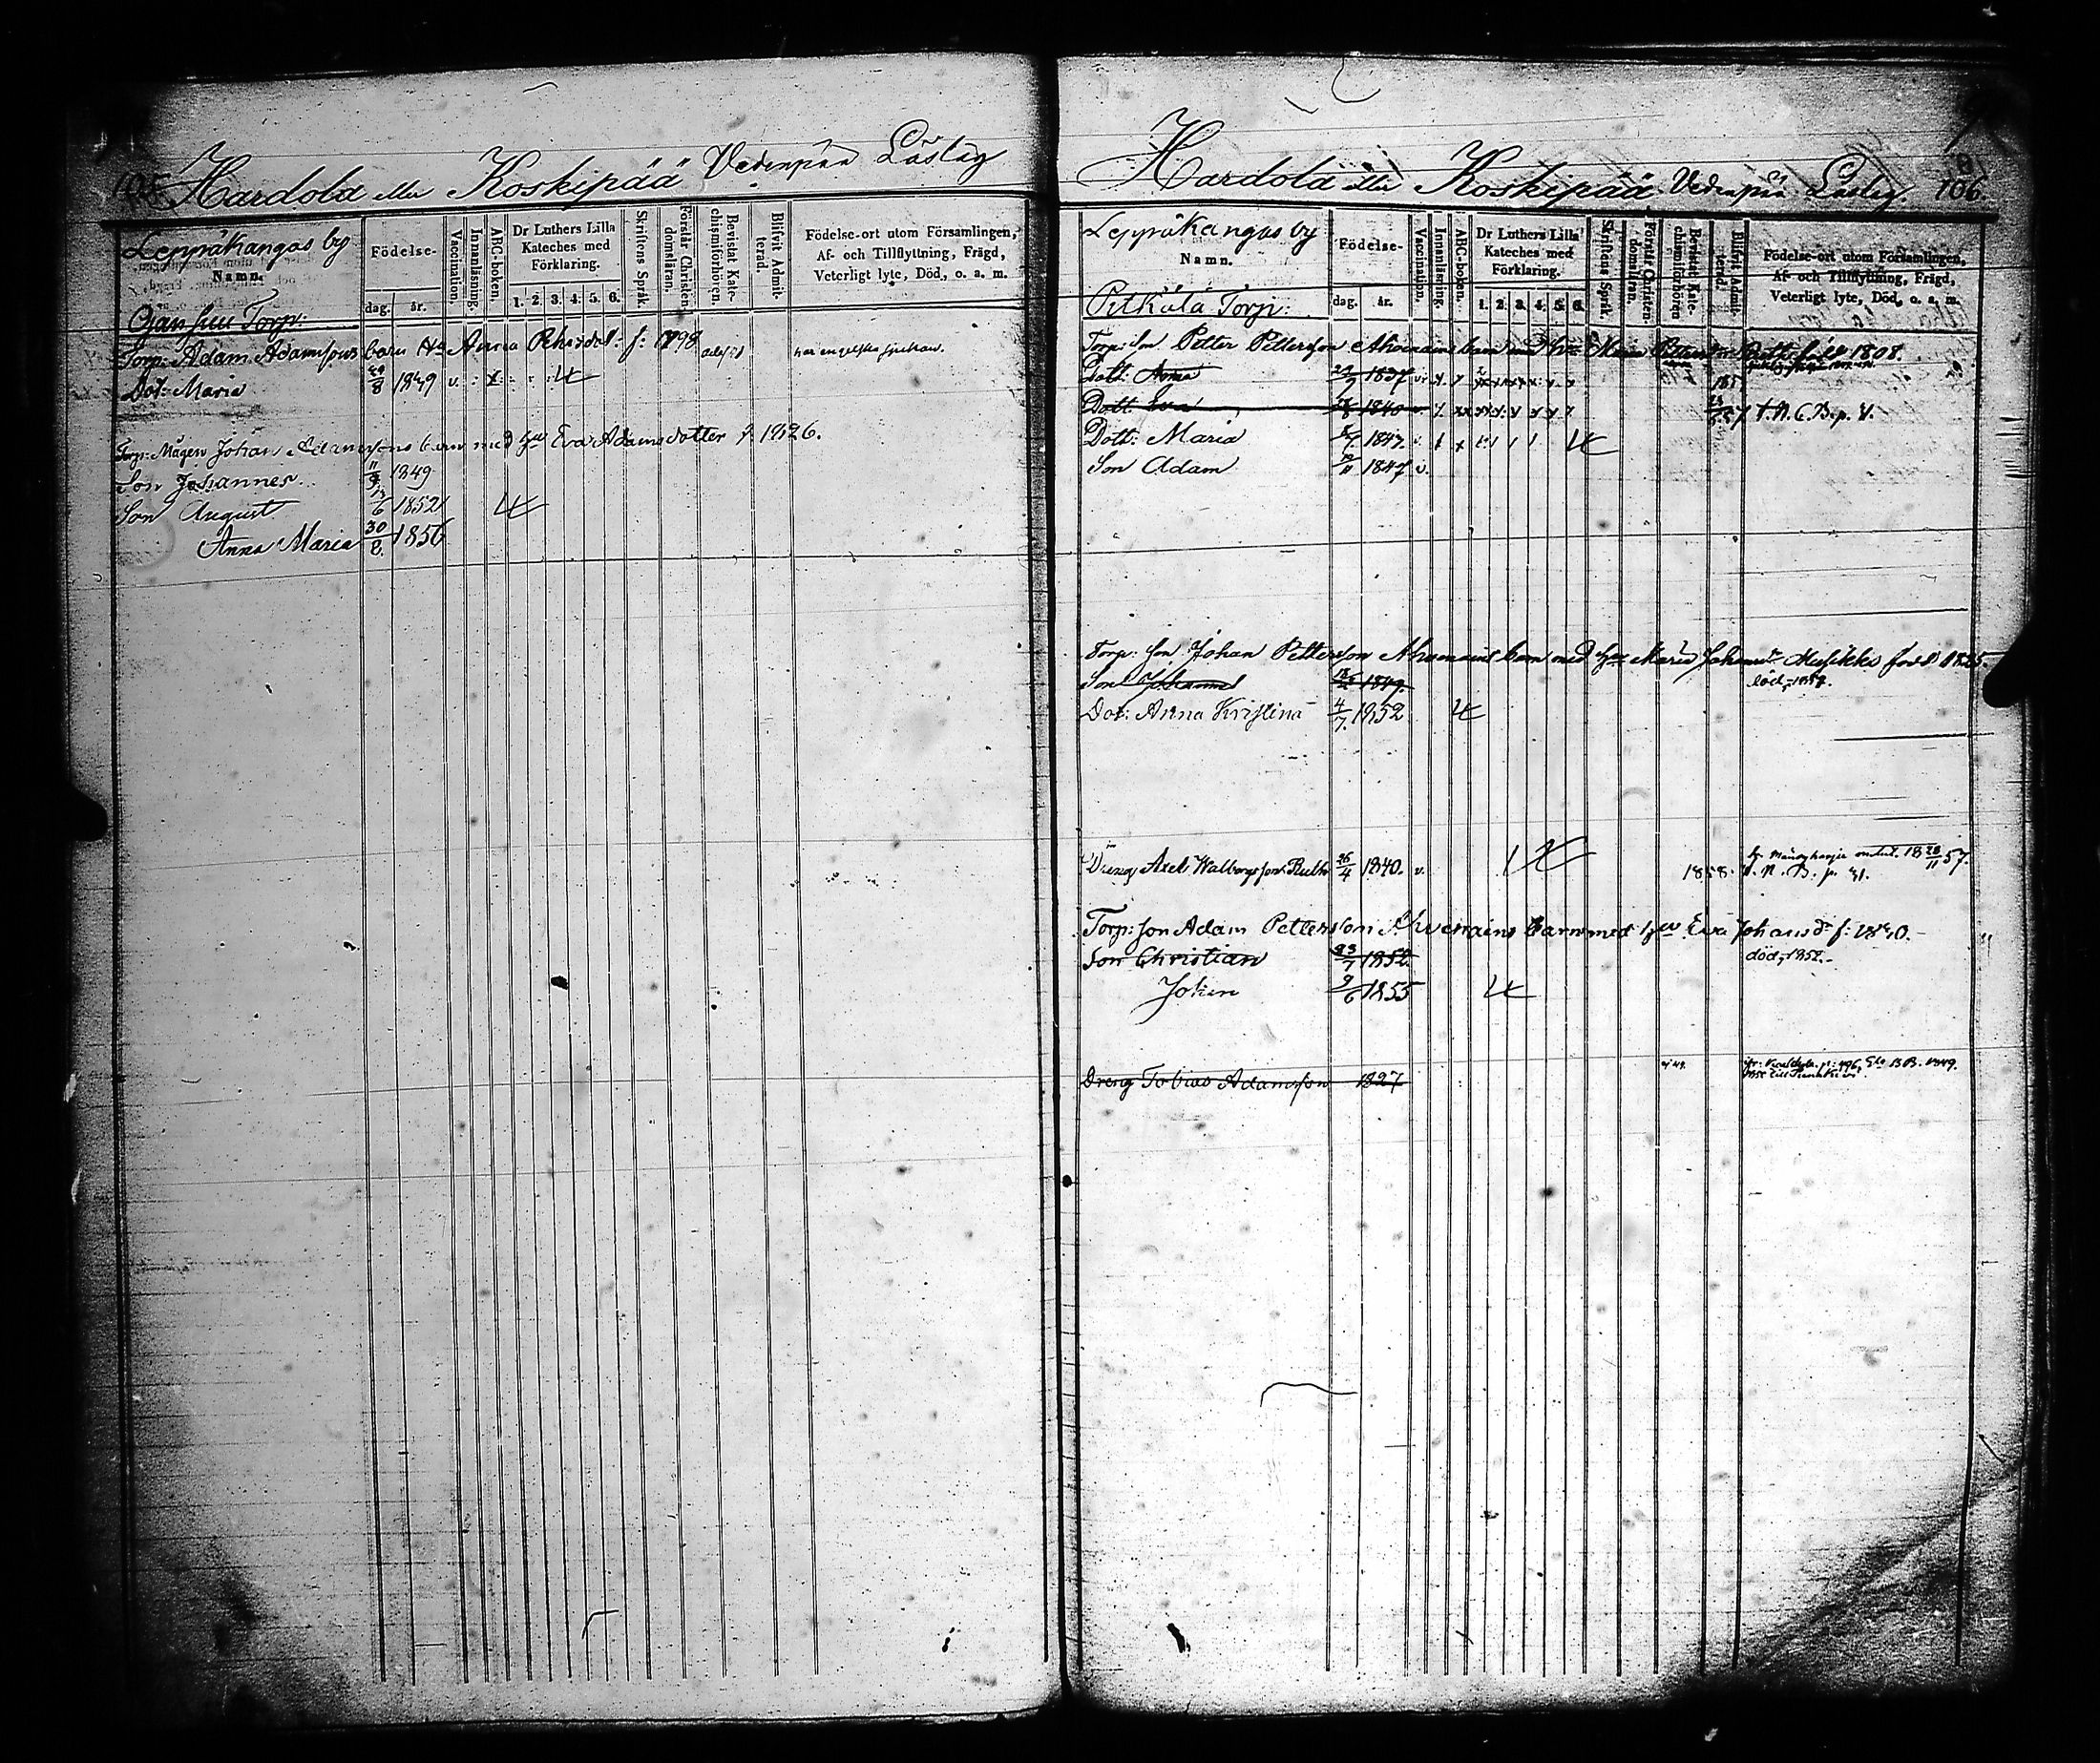 105 Hardola eller Koskipää Vedenpää Läslag
Leppäkangas by
Namn.
Födelse-
dag. år.
Vaccination.
Innanläsning.
ABC-boken.
Dr Luthers Lilla Kateches med Förklaring.
1. 2. 3. 4. 5. 6.
Skriftens Språk.
Förstår Christendomsläran.
Bevistat Katechismiförhören.
Blifvit Admitterad.
Födelse-ort utom Församlingen, Af- och Tillflyttning, Frägd, Veterligt lyte, Död, o. a. m.
Ojansuu Torp:
Torp: Adam Adamssons barn Anna f: 1798
Dot: Maria 29/8 1849 v.
Torp: Mågen Johan Adamssons barn med hu Eva Adamsdotter f. 1826.
Son Johannes 11/9 1849
Son August 13/6 1852
Anna Maria 30/8. 1856
Hardola eller Koskipää Vedenpää Läslag. 106.
Leppäkangas by
Namn.
Födelse-
dag. år.
Vaccination.
Innanläsning.
ABC-boken.
Dr Luthers Lilla Kateches med Förklaring.
1. 2. 3. 4. 5. 6.
Skriftens Språk.
Förstår Christendomsläran.
Bevistat Katechismiförhören
Blifvit Admitterad.
Födelse-ort utom Församlingen, Af- och Tillflyttning, Frägd, Veterligt lyte, Död, o. a. m.
Pitkälä Torp:
Torp: Son Petter Pettersson Ahvenains barn med hu Maria född 1808.
Dott: Anna 1837
Dott: Eva 1840
Dott: Maria 1847.
Son Adam 1847 v.
Torp: Son Johan Pettersson Ahvenains barn med hu Maria Johansdr född 1825.
Son Johannes 1849.
död,
Dot: Anna Kristina 4/7. 1852
Dreng Axel Walborgsson 26/4 1840. v. 1858.
Torp: son Adam Pettersson Ahvenains barn med hu Eva Johansdr f:
Son Christian 23/7 1852. död, 1852.
Johan 9/6 1855
Dreng Tobias Adamsson 1827